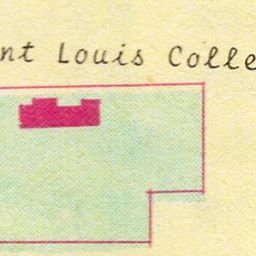 nt Louis Colle